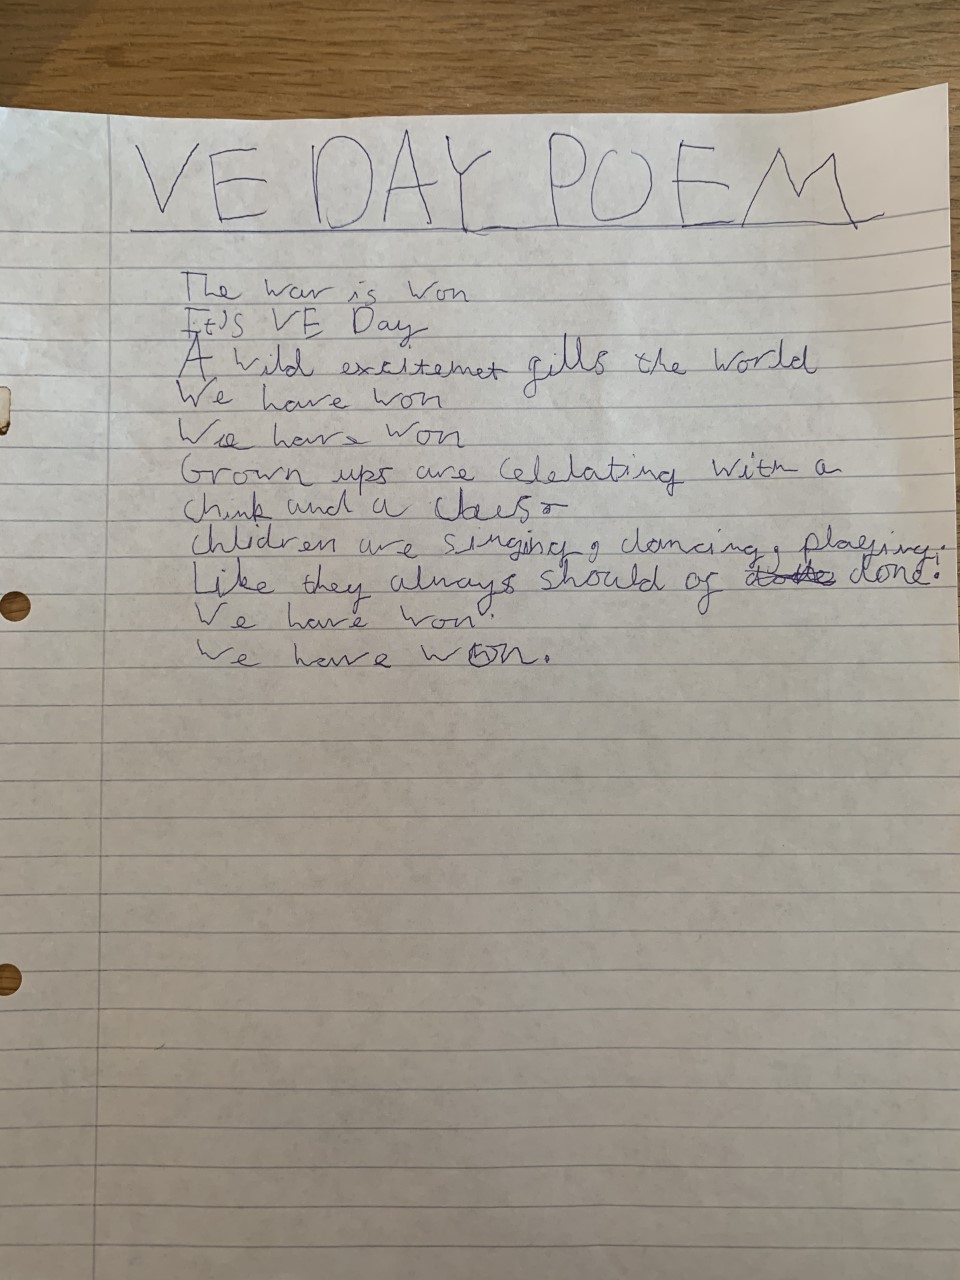 VE DAY POEM
The war is won
It's VE Day
A wild excitemet fills the world
We have won
We have won
Grown ups are celelating with a
chink and a
Chlidren are singing, dancing, playing.
Like they always should of done!
We have won.
We have won.